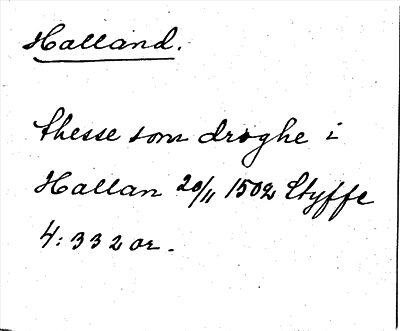 Halland.
thesse som droghe i
Hallan 20/11 1502 Styffe
4: 332 or.